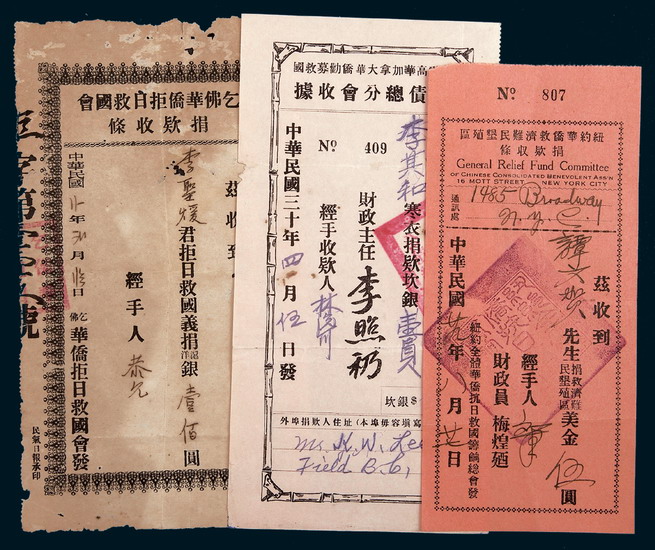 乞佛華僑拒日救國會
捐欵收條
茲收到
李聖煖君拒日救國義捐銀壹佰圓
經手人
中華民國年月日
乞佛華僑拒日救國會發
民氣日報承印
高華加拿大華僑勸募救國
債總分會收據
Nº 409
李其和寒衣捐欵坎銀壹員
財政主任 李照礽
經手收欵人
中華民國三十年四月伍日發
坎銀$
外埠捐欵人住址(本埠毋容填寫
Mr. H. W. Lee
Field B.C.
Nº 807
紐約華僑救濟難民墾殖區
捐欵收條
General Relief Fund Committee
OF CHINESE CONSOLIDATED BENEVOLENT ASS'N
16 MOTT STREET NEW YORK CITY
通訊處
1985 Broadway
N.Y.C.
茲收到
先生捐救濟難民墾殖區美金伍圓
經手人
財政員 梅煌廼
紐約全體華僑抗日救國籌餉總會發
中華民國年月廿日